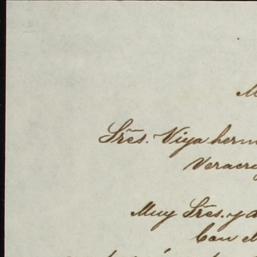 M
Sres. Viya herm
Veracr
Muy Sres. y a
Con